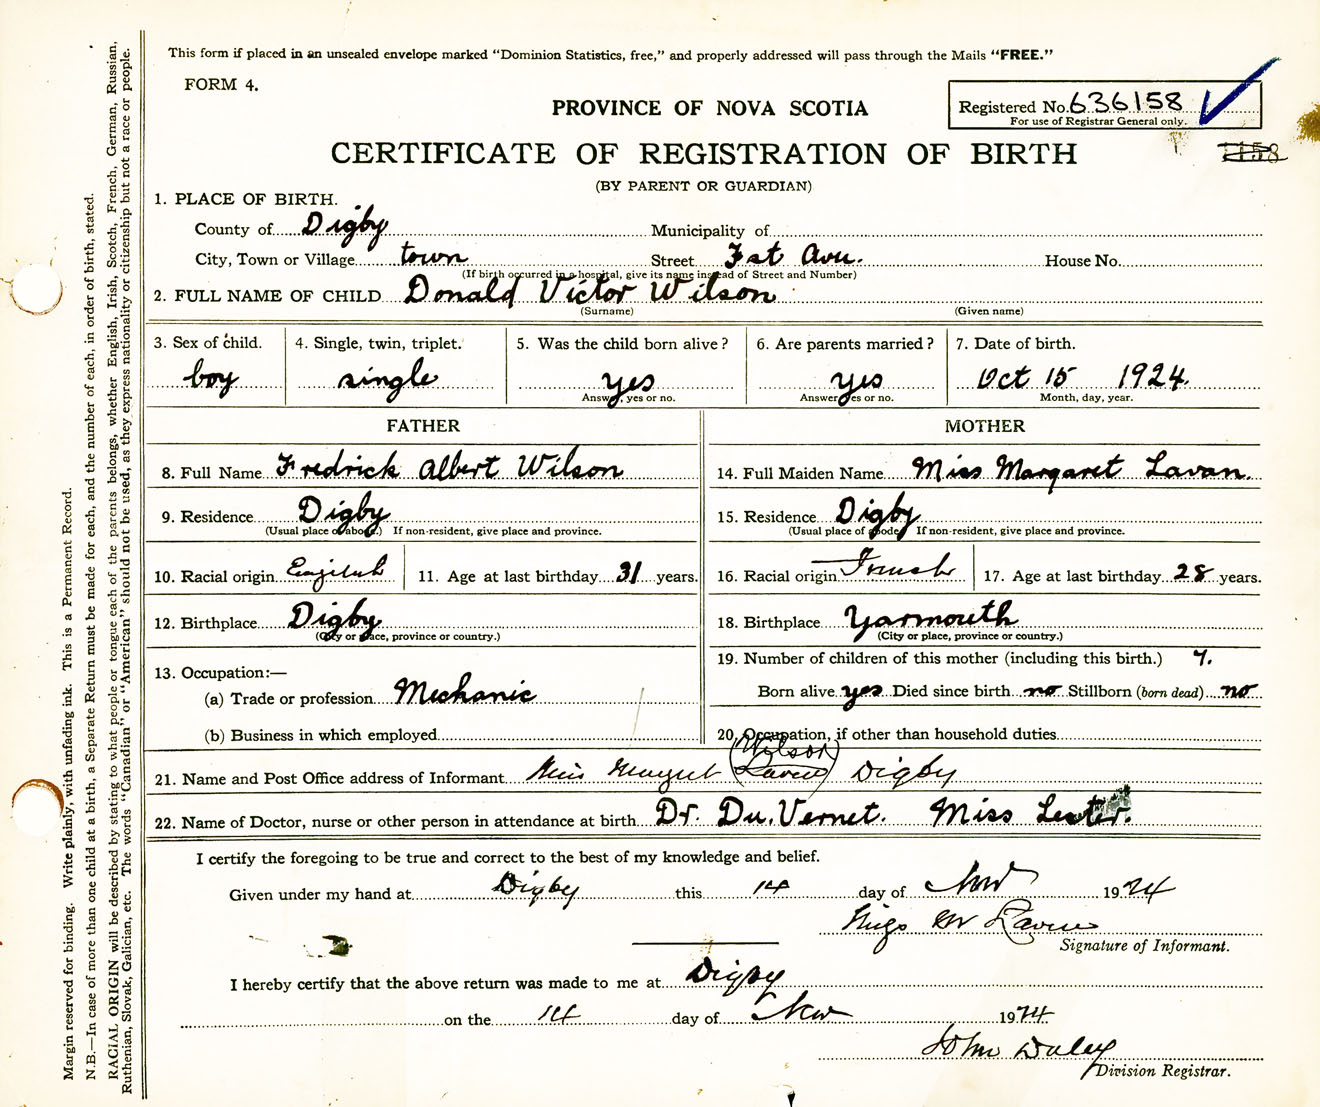 This form if placed in an unsealed envelope marked "Dominion Statistics, free," and properly addressed will pass through the Mails "FREE."
FORM 4.
PROVINCE OF NOVA SCOTIA
Registered No. 636158
For use of Registrar General only.
CERTIFICATE OF REGISTRATION OF BIRTH
(BY PARENT OR GUARDIAN)
1. PLACE OF BIRTH.
County of Digby Municipality of
City, Town or Village town Street Fst Avu. House No.
(If birth occurred in a hospital, give its name instead of Street and Number)
2. FULL NAME OF CHILD Donald Victor Wilson
(Surname) (Given name)
3. Sex of child. 4. Single, twin, triplet. 5. Was the child born alive? 6. Are parents married? 7. Date of birth.
boy single yes yes Oct 15 1924.
Answer, yes or no. Answer yes or no. Month, day, year.
FATHER MOTHER
8. Full Name Fredrick Albert Wilson 14. Full Maiden Name Miss Margaret Lavan.
9. Residence Digby 15. Residence Digby
(Usual place of abode.) If non-resident, give place and province. (Usual place of abode) If non-resident, give place and province.
10. Racial origin English 11. Age at last birthday 31 years. 16. Racial origin French 17. Age at last birthday 28 years.
12. Birthplace Digby 18. Birthplace Yarmouth
(City or place, province or country.) (City or place, province or country.)
13. Occupation:— 19. Number of children of this mother (including this birth.) 7.
(a) Trade or profession Mechanic Born alive yes Died since birth no Stillborn (born dead) no
(b) Business in which employed 20. Occupation, if other than household duties
Wilson
21. Name and Post Office address of Informant Miss Margret (Lavin) Digby
22. Name of Doctor, nurse or other person in attendance at birth Dr. Du. Vernet. Miss
I certify the foregoing to be true and correct to the best of my knowledge and belief.
Given under my hand at Digby this 14 day of Nov 1924
Lavin
Signature of Informant.
I hereby certify that the above return was made to me at Digby
on the 14 day of Nov 1924
John Daley
Division Registrar.
Margin reserved for binding. Write plainly, with unfading ink. This is a Permanent Record.
N.B.—In case of more than one child at a birth, a Separate Return must be made for each, and the number of each, in order of birth, stated.
RACIAL ORIGIN will be described by stating to what people or tongue each of the parents belongs, whether English, Irish, Scotch, French, German, Russian,
Ruthenian, Slovak, Galician, etc. The words "Canadian" or "American" should not be used, as they express nationality or citizenship but not a race or people.